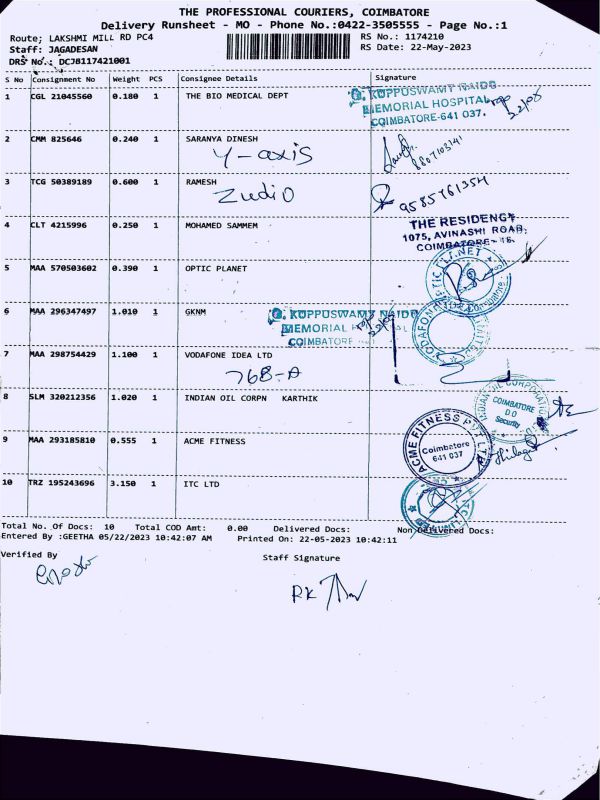 THE PROFESSIONAL COURIERS, COIMBATORE
Delivery Runsheet - MO - Phone No.:0422-3505555 - Page No.:1
Route; LAKSHMI MILL RD PC4 RS No.: 1174210
Staff: JAGADESAN RS Date: 22-May-2023
DRS No.: DCJ8117421001
S No Consignment No Weight PCS Consignee Details Signature
1 CGL 21045560 0.180 1 THE BIO MEDICAL DEPT
G. KUPPUSWAMY NAIDU
MEMORIAL HOSPITAL
COIMBATORE-641 037.
22/05
2 CMM 825646 0.240 1 SARANYA DINESH
Y-axis
8807103141
3 TCG 50389189 0.600 1 RAMESH
Zudio
9585761354
4 CLT 4215996 0.250 1 MOHAMED SAMMEM
THE RESIDENCY
1075, AVINASHI ROAD,
COIMBATORE - 18.
5 MAA 570503602 0.390 1 OPTIC PLANET
6 MAA 296347497 1.010 1 GKNM
G. KUPPUSWAMY NAIDU
MEMORIAL
COIMBATORE
7 MAA 298754429 1.100 1 VODAFONE IDEA LTD
VODAFONE
768-A
8 SLM 320212356 1.020 1 INDIAN OIL CORPN KARTHIK
INDIAN OIL CORPORATION
COIMBATORE
D O
Security
9 MAA 293185810 0.555 1 ACME FITNESS
ACME FITNESS PVT LTD
Coimbatore
641 037
10 TRZ 195243696 3.150 1 ITC LTD
LIMITED
Total No. Of Docs: 10 Total COD Amt: 0.00 Delivered Docs: Non Delivered Docs:
Entered By :GEETHA 05/22/2023 10:42:07 AM Printed On: 22-05-2023 10:42:11
Verified By Staff Signature
RK